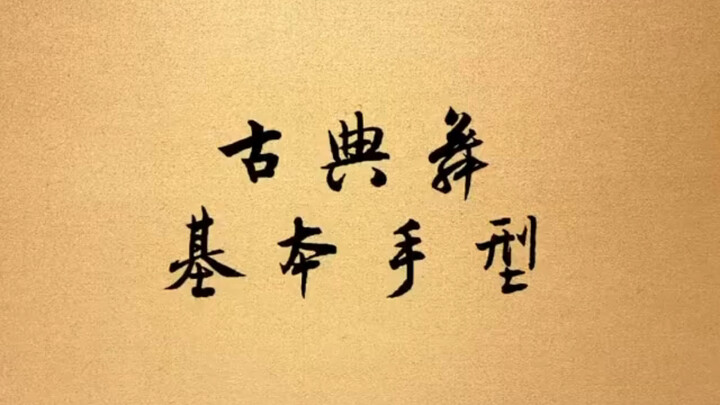 古典舞
基本手型